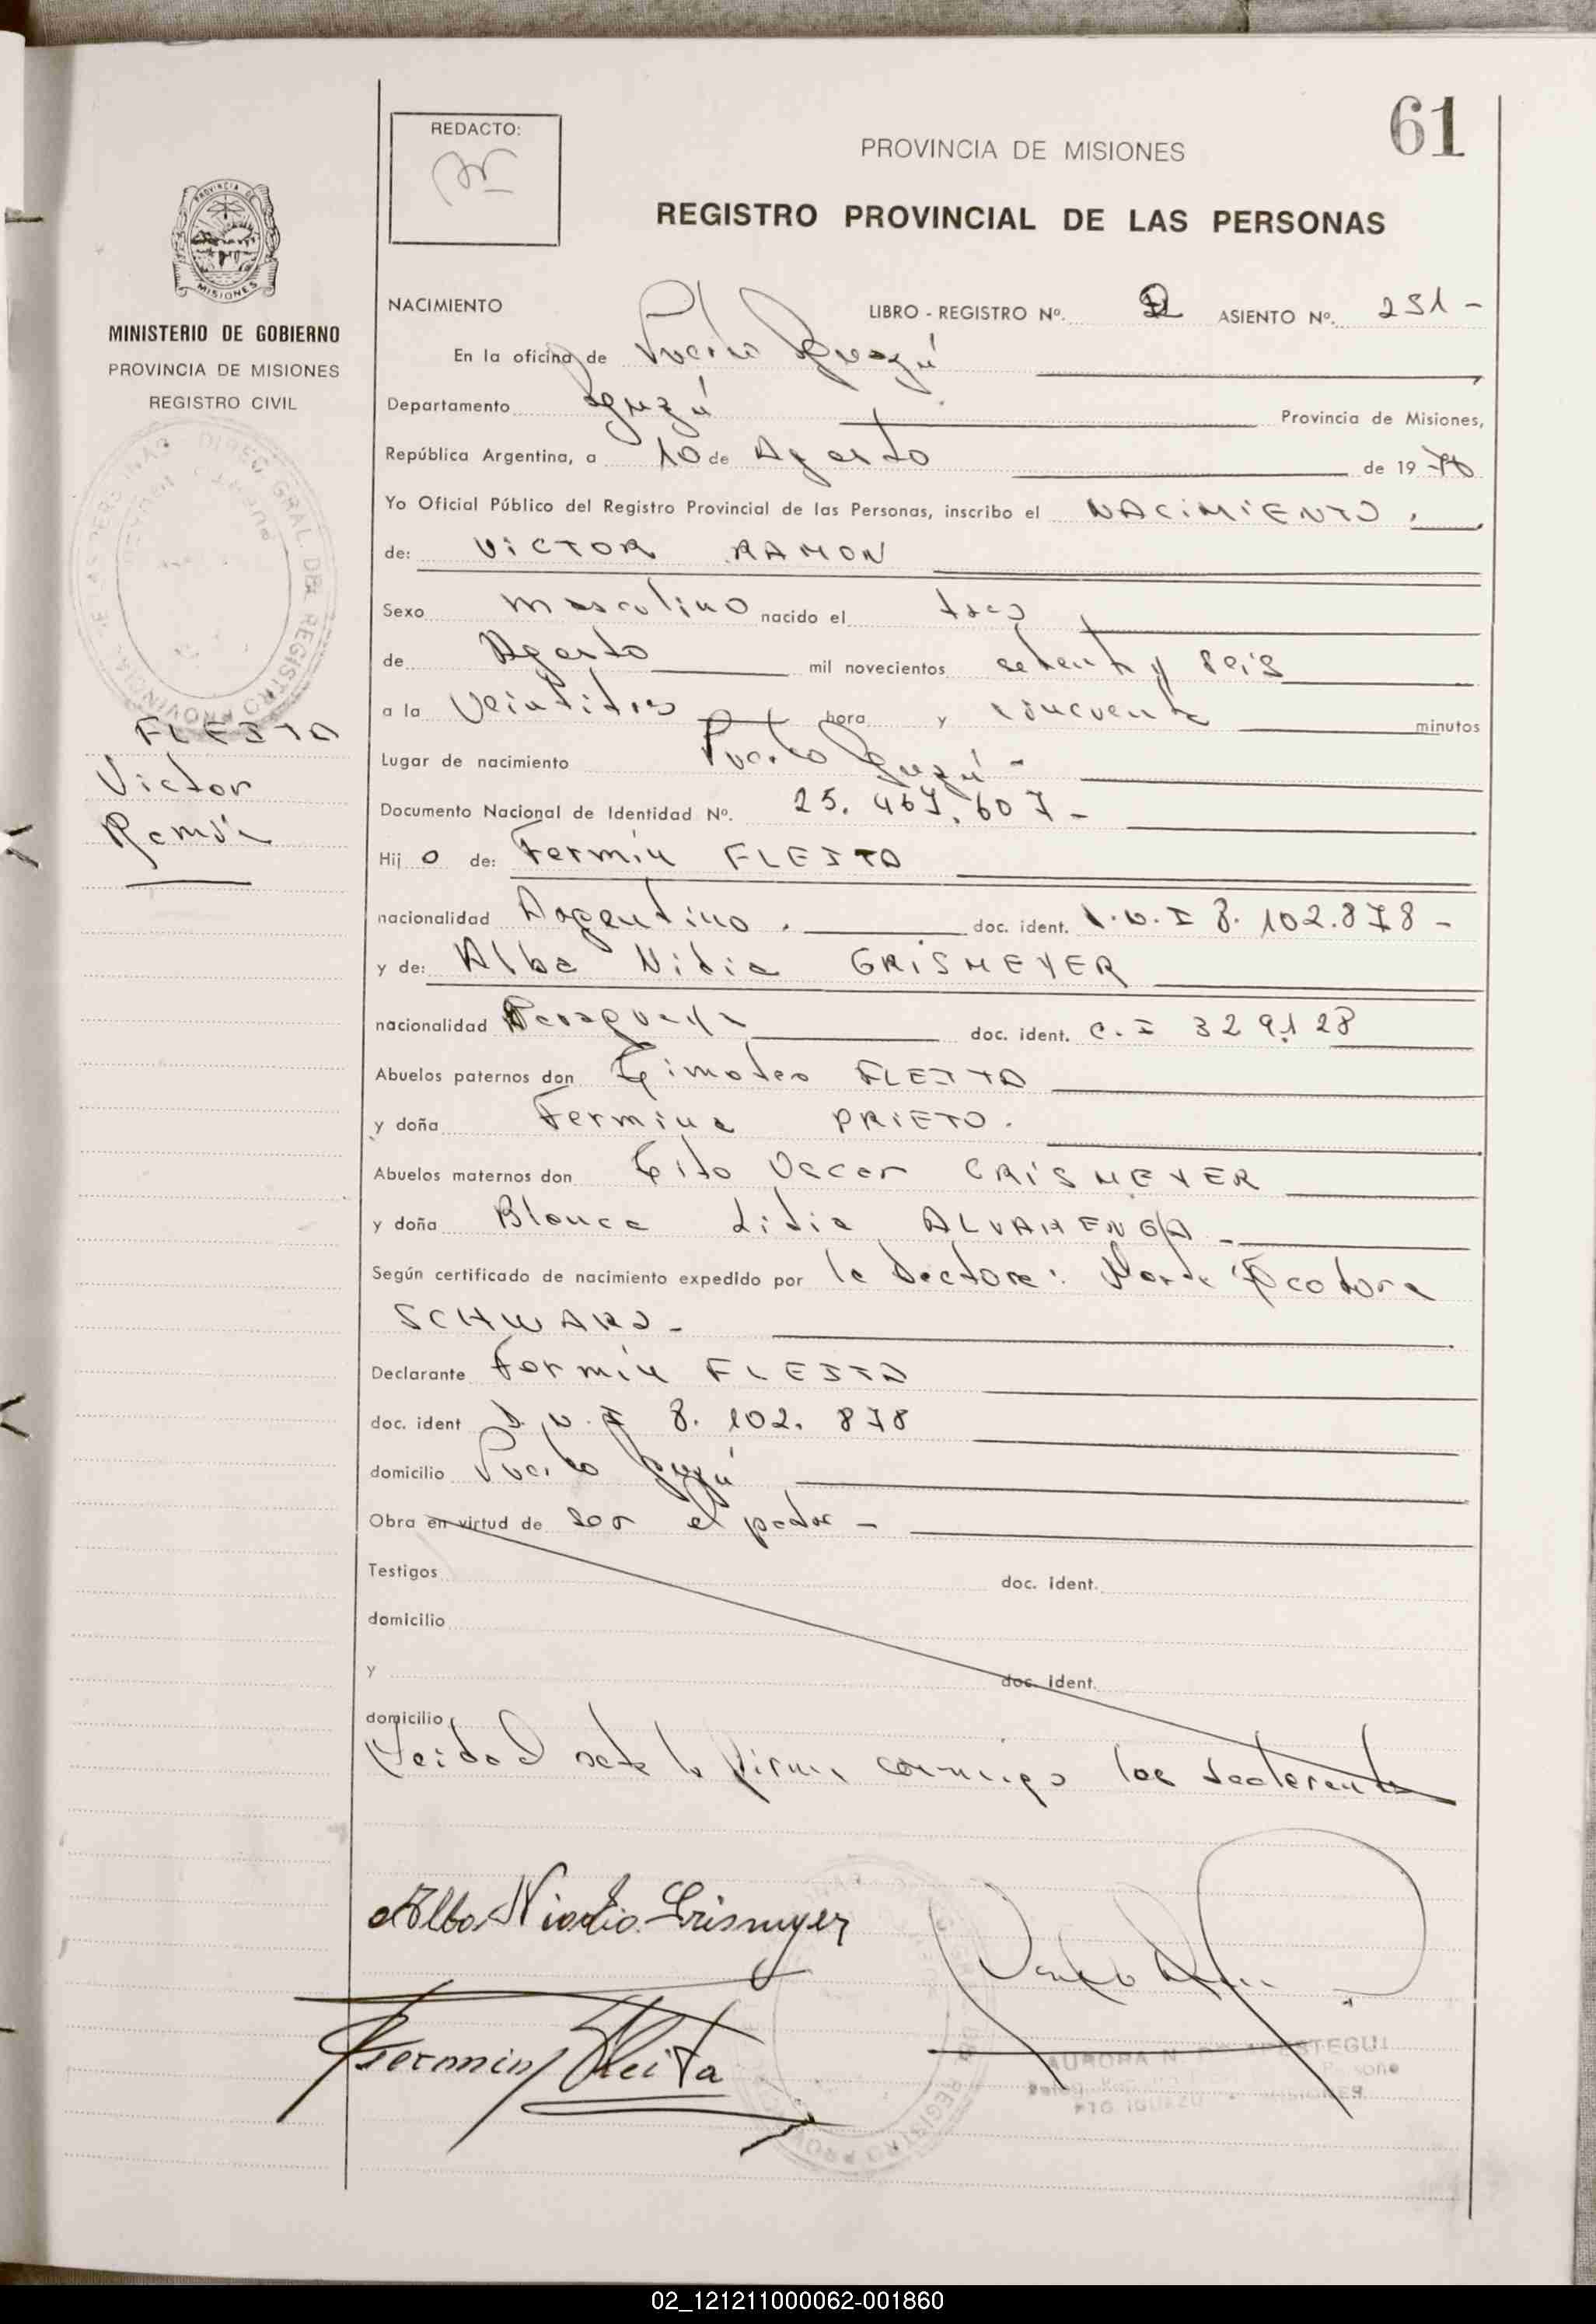 61
REDACTO:
PROVINCIA DE MISIONES
REGISTRO PROVINCIAL DE LAS PERSONAS
PROVINCIA DE
MISIONES
MINISTERIO DE GOBIERNO
PROVINCIA DE MISIONES
REGISTRO CIVIL
DIREC. GRAL. DEL REGISTRO PROVINCIAL DE LAS PERSONAS
FLEITA
Victor
Ramón
NACIMIENTO LIBRO - REGISTRO Nº. ASIENTO Nº. 251 -
En la oficina de Puerto Iguazú
Departamento Iguazú Provincia de Misiones,
República Argentina, a 10 de Agosto de 1976
Yo Oficial Público del Registro Provincial de las Personas, inscribo el NACIMIENTO.
de: VICTOR RAMON
Sexo masculino nacido el tres
de Agosto mil novecientos setenta y seis
a la veintitres hora y cincuenta minutos
Lugar de nacimiento Puerto Iguazú -
Documento Nacional de Identidad Nº. 25.467.607 -
Hij o de: Fermín FLEITA
nacionalidad Argentino. doc. ident. D.N.I 8.102.878 -
y de: Alba Nidia GRISMEYER
nacionalidad Paraguaya doc. ident. C.I 329.128
Abuelos paternos don Timoteo FLEITA
y doña Fermina PRIETO.
Abuelos maternos don Tito Oscar GRISMEYER
y doña Blanca Lidia ALVARENGA -
Según certificado de nacimiento expedido por la Doctora: Teodora
SCHWARZ -
Declarante Fermín FLEITA
doc. ident D.N.I 8.102.878
domicilio Puerto Iguazú
Obra en virtud de ser el padre -
Testigos doc. ident.
domicilio
y doc. ident.
domicilio
Leida el acta la firman conmigo los declarantes
Alba Niodio Grismeyer
Fermin Fleita
AURORA N.
PTO IGUAZU MISIONES
REGISTRO PROV
02_121211000062-001860